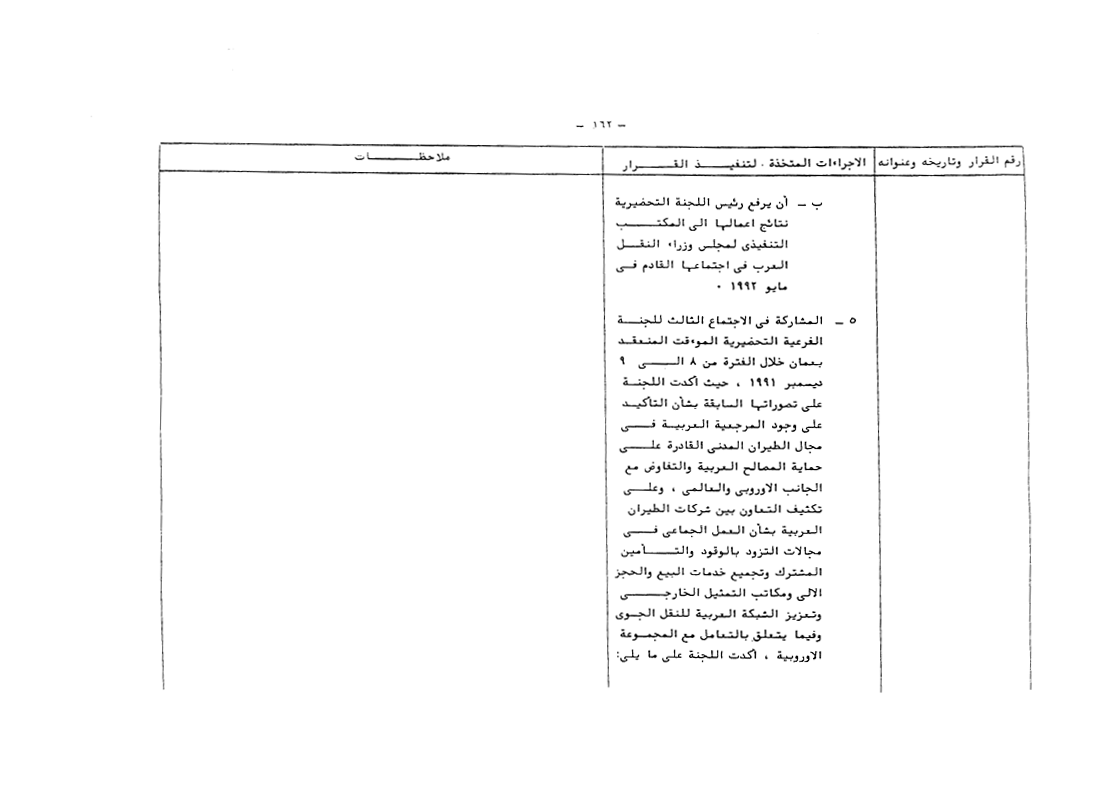 – ١٦٢ –
رقم القرار وتاريخه وعنوانه
الاجراءات المتخذة لتنفيـــذ القـــرار
ملاحظـــــات
ب – أن يرفع رئيس اللجنة التحضيرية
نتائج اعمالها الى المكتـــب
التنفيذى لمجلس وزراء النقـل
العرب فى اجتماعها القادم فـى
مايو ١٩٩٢ ٠
٥ – المشاركة فى الاجتماع الثالث للجنـة
الفرعية التحضيرية الموءقت المنعقد
بعمان خلال الفترة من ٨ الـــى ٩
ديسمبر ١٩٩١ ، حيث أكدت اللجنة
على تصوراتها السابقة بشأن التأكيـد
على وجود المرجعية العربيـة فـــى
مجال الطيران المدنى القادرة علـــى
حماية المصالح العربية والتفاوض مع
الجانب الاوروبى والعالمى ، وعلـــى
تكثيف التعاون بين شركات الطيران
العربية بشأن العمل الجماعى فـــى
مجالات التزود بالوقود والتـــأمين
المشترك وتجميع خدمات البيع والحجز
الالى ومكاتب التمثيل الخارجـــى
وتعزيز الشبكة العربية للنقل الجـوى
وفيما يتعلق بالتعامل مع المجموعة
الاوروبية ، أكدت اللجنة على ما يلى: